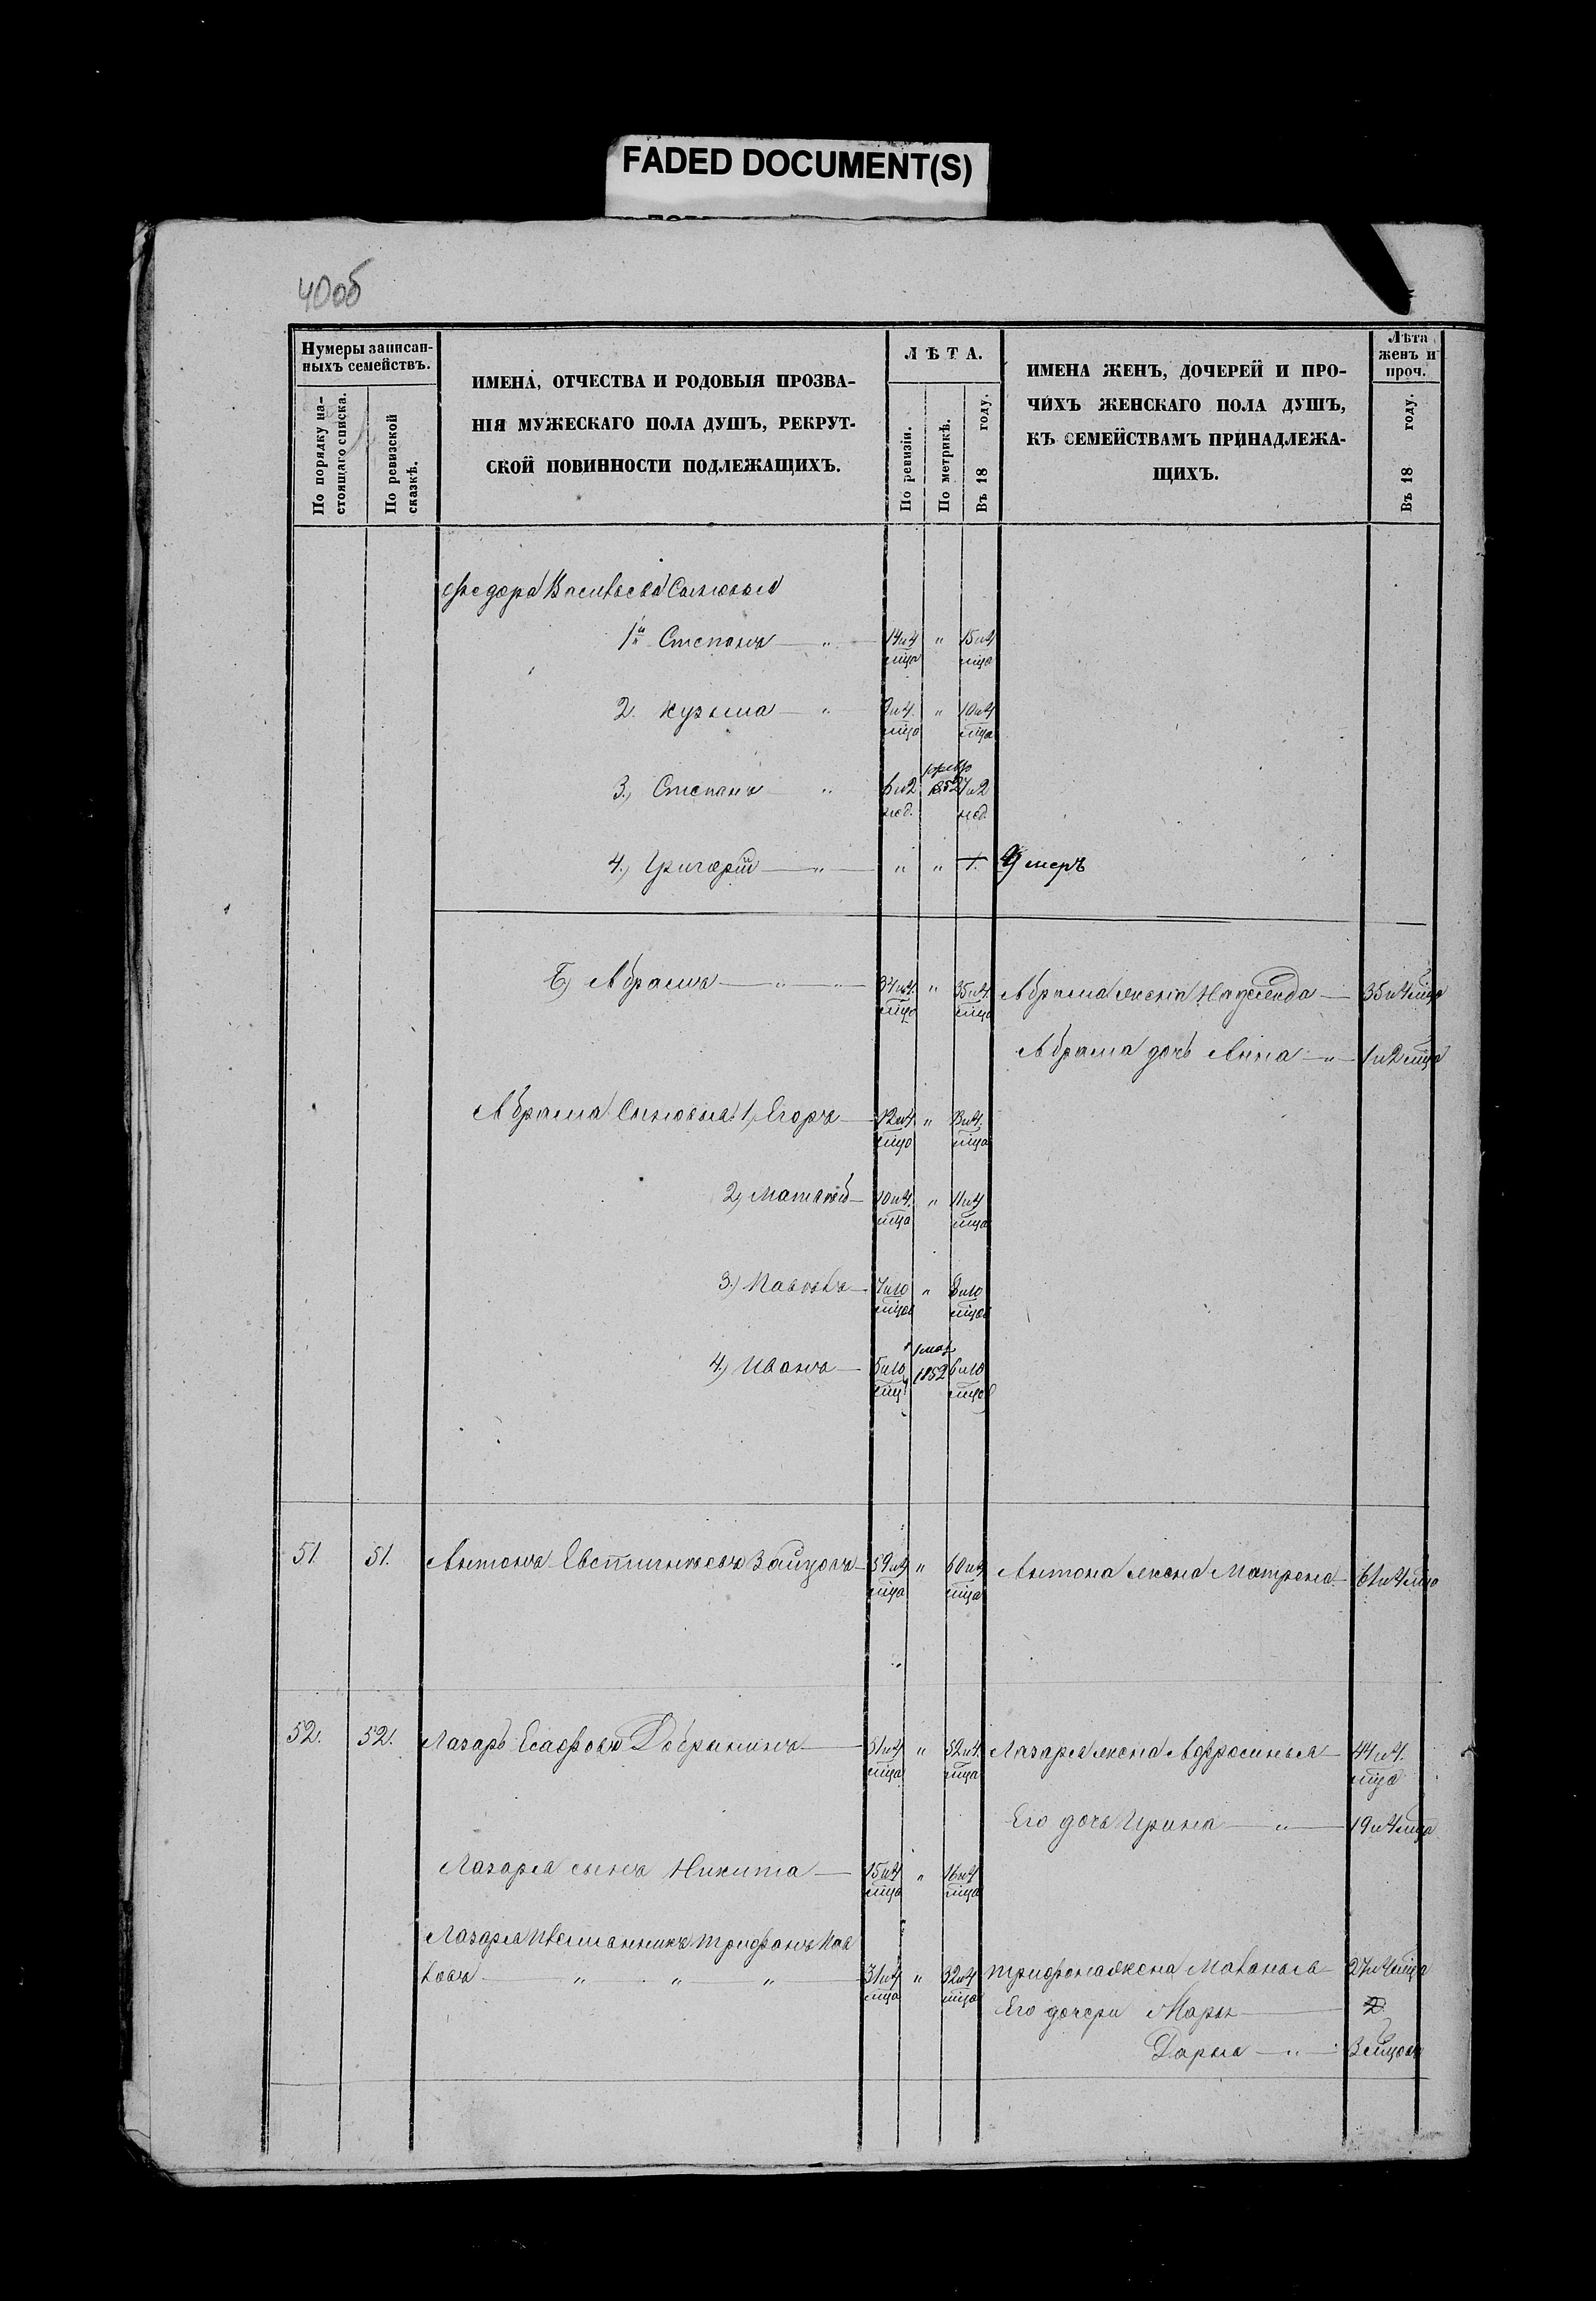 FADED DOCUMENT(S)
40об
Нумеры записан-
ныхъ семействъ.
По порядку на-
стоящаго списка.
По ревизской
сказкѣ.
ИМЕНА, ОТЧЕСТВА И РОДОВЫЯ ПРОЗВА-
НІЯ МУЖЕСКАГО ПОЛА ДУШЪ, РЕКРУТ-
СКОЙ ПОВИННОСТИ ПОДЛЕЖАЩИХЪ.
ЛѢТА.
По ревизіи.
По метрикѣ.
Въ 18 году.
ИМЕНА ЖЕНЪ, ДОЧЕРЕЙ И ПРО-
ЧИХЪ ЖЕНСКАГО ПОЛА ДУШЪ,
КЪ СЕМЕЙСТВАМЪ ПРИНАДЛЕЖА-
ЩИХЪ.
Лѣта
женъ и
проч.
Въ 18 году.
Федора Васильева Сыновья
1й Степанъ — " — 14 и 4 " 15 и 4
мца мца
2. Кузьма — " — 9 и 4. " 10 и 4
мца мца
3.) Степанъ " 6 и 2 1852 7 и 2
нед. нед.
4.) Григорій — " — " " 1. Умеръ
Б) Абрамъ — " — " — 34 и 4. " 35 и 4. Абрама жена Надежда — 35 и 4 мца
мца мца
Абрама дочь Анна — " — 1 и 2 мца
Абрама Сыновья: 1, Егоръ — 12 и 4 " 13 и 4.
мца мца
2) Матвѣй — 10 и 4. " 11 и 4
мца мца
3.) Павелъ — 7 и 10 " 8 и 10
мцов мцов
4.) Иванъ — 5 и 10 1852 6 и 10
мц мцов
51. 51. Антонъ Евстигнѣевъ Зайцовъ — 59 и 4 " 60 и 4 Антона жена Матрена — 61 и 4 мца
мца мца
52. 52. Лазарь Есафовъ Добрынинъ — 51 и 4 " 52 и 4. Лазаря жена Афросинья — 44 и 4.
мца мца мца
Его дочь Ирина — " — 19 и 4 мца
Лазаря сынъ Никита — 15 и 4 " 16 и 4
мца мца
Лазаря Племянникъ Трифонъ Пав
ловъ — " — " — " — 31 и 4 " 32 и 4 Трифона жена Маланья — 27 и 4 мца
мца мца
Его дочери Марья — 2
Дарья — " — 3 мцовъ